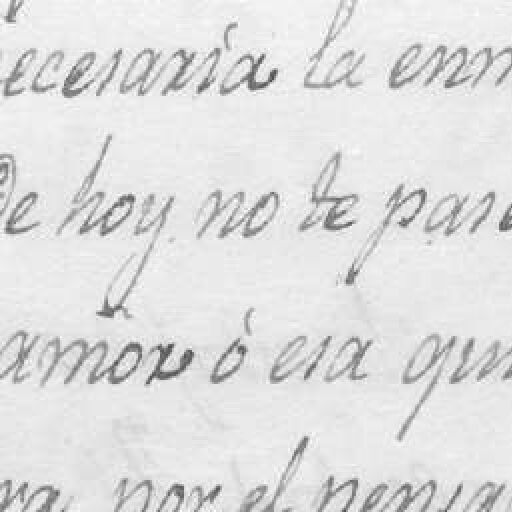 necesaria la enm
De hoy no te pase
amor ó esa qui
ra por el pensa